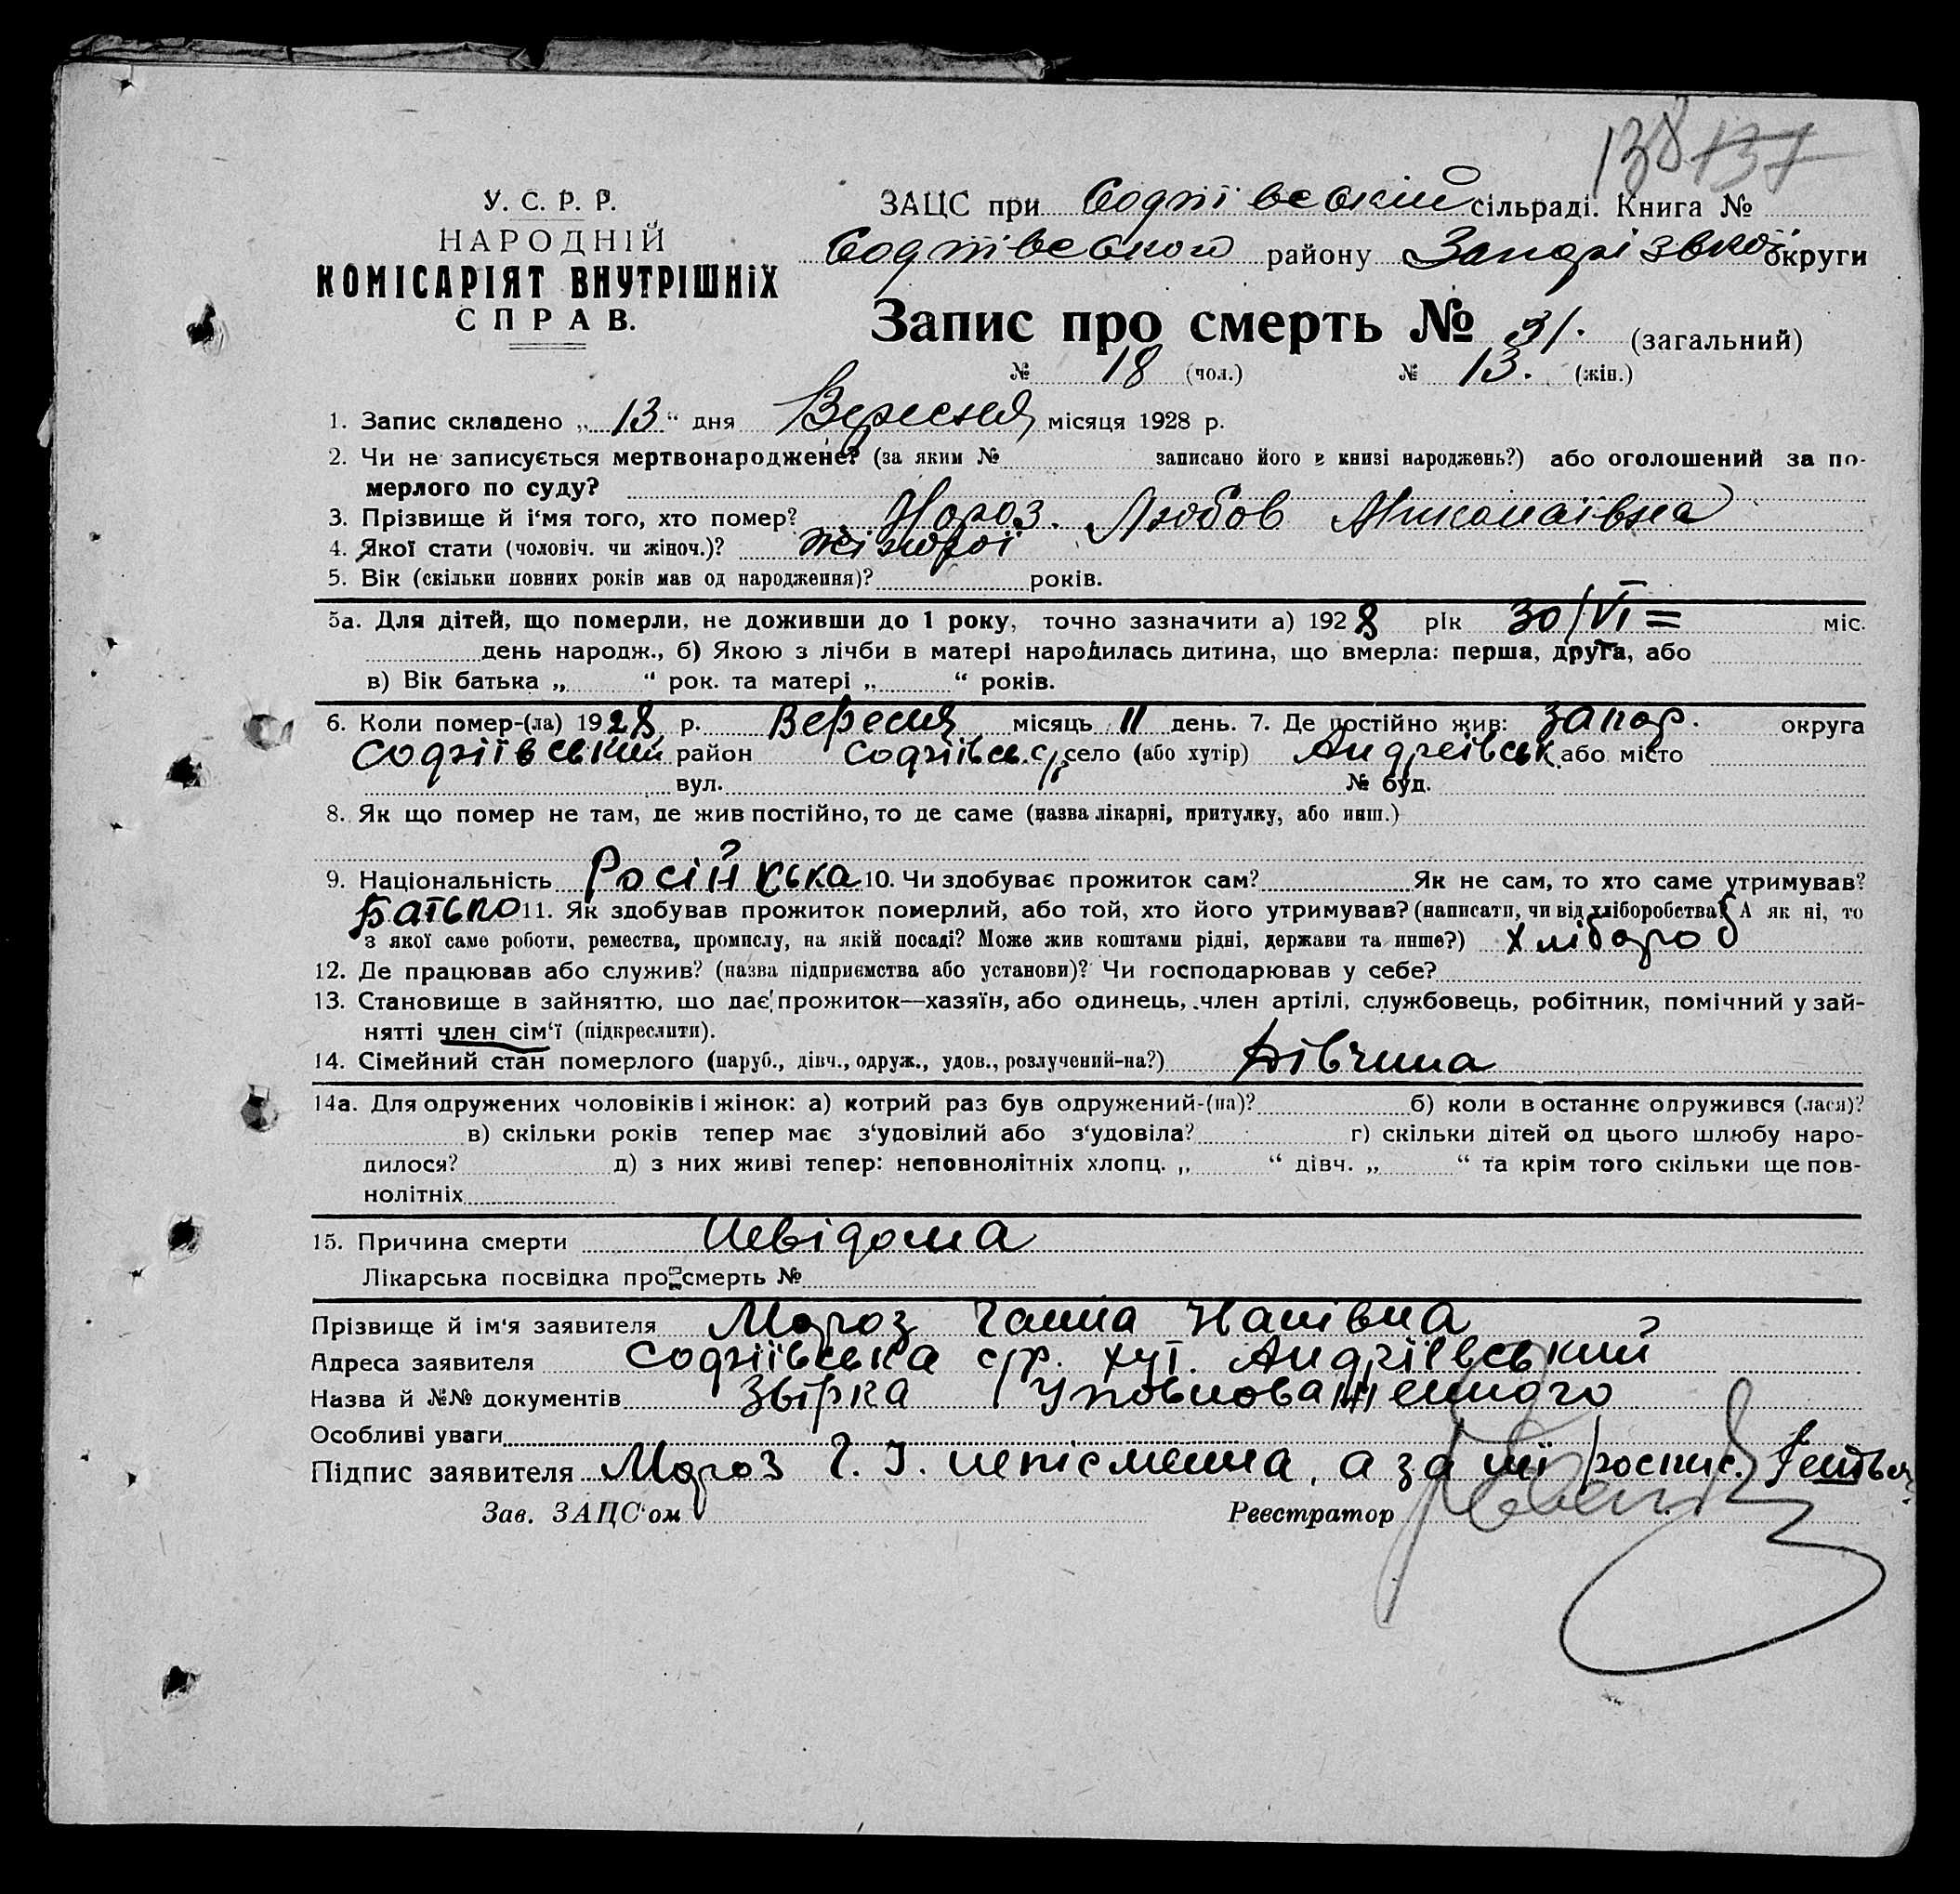 138 137
У. С. Р. Р.
НАРОДНІЙ
КОМІСАРІЯТ ВНУТРІШНІХ
СПРАВ.
ЗАЦС при Софіївській сільраді. Книга №
Софіївського району Запорізької округи
Запис про смерть № 31. (загальний)
№ 18 (чол.) № 13. (жін.)
1. Запис складено „ 13 “ дня Вересня місяця 1928 р.
2. Чи не записується мертвонароджене? (за яким № записано його в книзі народжень?) або оголошений за по-
мерлого по суду?
3. Прізвище й і‘мя того, хто помер? Мороз. Любов Миколаївна
4. Якої стати (чоловіч. чи жіноч.)? жіночої
5. Вік (скільки повних років мав од народження)? років.
5а. Для дітей, що померли, не доживши до 1 року, точно зазначити а) 1928 рік 30/VI = міс.
день народж., б) Якою з лічби в матері народилась дитина, що вмерла: перша, друга, або
в) Вік батька „ “ рок. та матері „ “ років.
6. Коли помер-(ла) 1928 р. Вересня місяць 11 день. 7. Де постійно жив: Запор. округа
Софіївський район Софіївськ. с/р село (або хутір) Андреівськ. або місто
вул. № буд.
8. Як що помер не там, де жив постійно, то де саме (назва лікарні, притулку, або инш.)
9. Національність Російська 10. Чи здобуває прожиток сам? Як не сам, то хто саме утримував?
Батько 11. Як здобував прожиток померлий, або той, хто його утримував? (написати, чи від хліборобства? А як ні, то
з якої саме роботи, ремества, промислу, на якій посаді? Може жив коштами рідні, держави та инше?) Хлібороб
12. Де працював або служив? (назва підприємства або установи)? Чи господарював у себе?
13. Становище в зайняттю, що дає прожиток—хазяїн, або одинець, член артілі, службовець, робітник, помічний у зай-
нятті член сім‘ї (підкреслити).
14. Сімейний стан померлого (паруб., дівч., одруж., удов., розлучений-на?) Дівчина
14а. Для одружених чоловіків і жінок: а) котрий раз був одружений-(на)? б) коли востаннє одружився (лася)?
в) скільки років тепер має з‘удовілий або з‘удовіла? г) скільки дітей од цього шлюбу наро-
дилося? д) з них живі тепер: неповнолітніх хлопц. „ “ дівч. „ “ та крім того скільки ще пов-
нолітніх
15. Причина смерти Невідома
Лікарська посвідка про смерть №
Прізвище й ім‘я заявителя Мороз Ганна Іванівна
Адреса заявителя Софіївська с/р. хут. Андріівський
Назва й №№ документів Звірка Уповноваженного
Особливі уваги
Підпис заявителя Мороз Г. І. неписменна, а за неї роспис.
Зав. ЗАЦС‘ом Реестратор